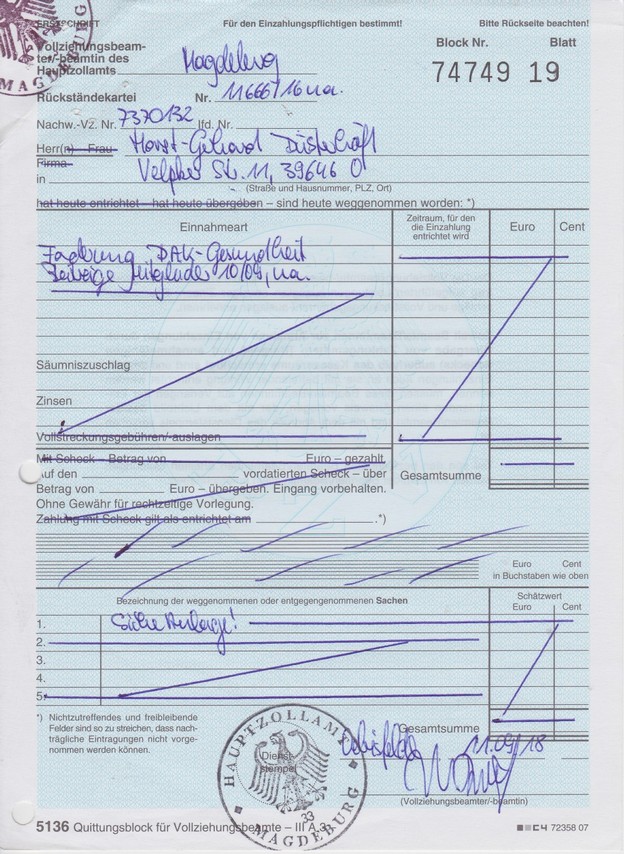 ERSTSCHRIFT Für den Einzahlungspflichtigen bestimmt! Bitte Rückseite beachten!
Vollziehungsbeam-
ter/-beamtin des
Hauptzollamts Magdeburg
Block Nr. Blatt
74749 19
Rückständekartei Nr. 11666/16 u.a.
Nachw.-Vz. Nr. 7370132 lfd. Nr.
Herr(n) – Frau Horst-Gerhard
Firma
in Velpker Str. 11, 39646 O
(Straße und Hausnummer, PLZ, Ort)
hat heute entrichtet – hat heute übergeben – sind heute weggenommen worden: *)
Einnahmeart
Zeitraum, für den
die Einzahlung
entrichtet wird
Euro Cent
Forderung DAK-Gesundheit
Beiträge Mitglieder 10/09, u.a.
Säumniszuschlag
Zinsen
Vollstreckungsgebühren/-auslagen
Mit Scheck – Betrag von Euro – gezahlt.
Auf den vordatierten Scheck – über
Betrag von Euro – übergeben. Eingang vorbehalten.
Ohne Gewähr für rechtzeitige Vorlegung.
Zahlung mit Scheck gilt als entrichtet am .*)
Gesamtsumme
Euro Cent
in Buchstaben wie oben
Bezeichnung der weggenommenen oder entgegengenommenen Sachen
Schätzwert
Euro Cent
1. Siehe Anlage!
2.
3.
4.
5.
*) Nichtzutreffendes und freibleibende
Felder sind so zu streichen, dass nach-
trägliche Eintragungen nicht vorge-
nommen werden können.
Gesamtsumme
HAUPTZOLLAMT
MAGDEBURG
33
Dienst-
stempel
11.09.18
(Vollziehungsbeamter/-beamtin)
5136 Quittungsblock für Vollziehungsbeamte – III A 3 – C4 72358 07